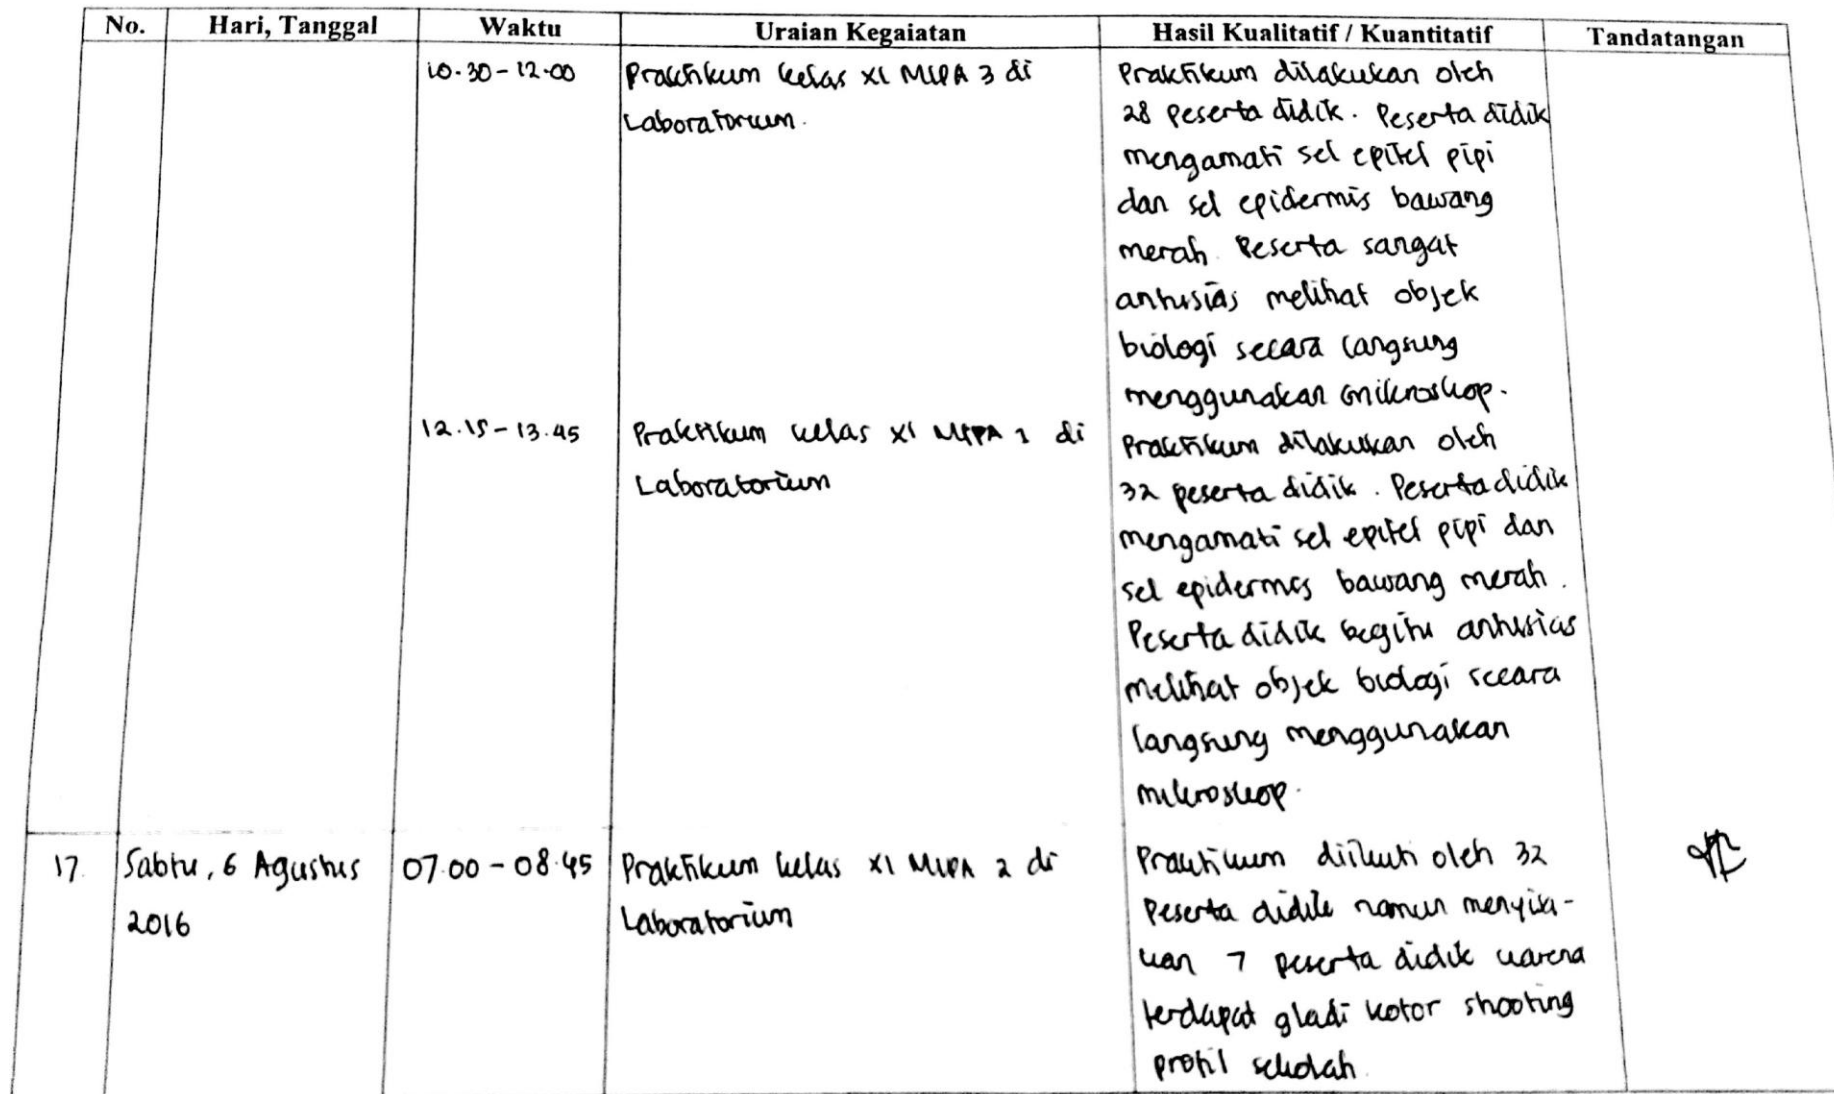 No. Hari, Tanggal Waktu Uraian Kegaiatan Hasil Kualitatif / Kuantitatif Tandatangan
10.30 - 12.00 Praktikum kelas XI MIPA 3 di Praktikum dilakukan oleh
Laboratorium. 28 peserta didik. Peserta didik
mengamati sel epitel pipi
dan sel epidermis bawang
merah. Peserta sangat
antusias melihat objek
biologi secara langsung
menggunakan mikroskop.
12.15 - 13.45 Praktikum kelas XI MIPA 1 di Praktikum dilakukan oleh
Laboratorium 32 peserta didik. Peserta didik
mengamati sel epitel pipi dan
sel epidermis bawang merah.
Peserta didik begitu antusias
melihat objek biologi secara
langsung menggunakan
mikroskop.
17. Sabtu, 6 Agustus 07.00 - 08.45 Praktikum kelas XI MIPA 2 di Praktikum diikuti oleh 32
2016 Laboratorium peserta didik namun menyisa-
kan 7 peserta didik karena
terdapat gladi kotor shooting
profil sekolah.